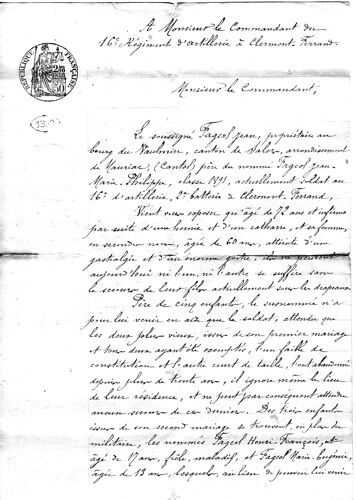 A Monsieur le Commandant du
16e Régiment d'artillerie à Clermont-Ferrand.
RÉPUBLIQUE FRANÇAISE
Monsieur le Commandant,
Le soussigné Fageol Jean, propriétaire au
bourg du Vaulmier, canton de Salers, arrondissement
de Mauriac, (Cantal), père du nommé Fageol Jean-
Marie-Philippe, classe 1891, actuellement soldat au
16e d'artillerie, 2e batterie à Clermont-Ferrand,
Vient vous exposer qu'âgé de 72 ans et infirme
par suite d'une hernie et d'un cathare, et sa femme,
en secondes noces, âgée de 60 ans, atteinte d'une
gastralgie et d'un énorme goître, ils ne peuvent
aujourd'hui ni l'un, ni l'autre se suffire sans
le secours de leur fils actuellement sous les drapeaux.
Père de cinq enfants, le susnommé n'a
pour lui venir en aide que le soldat, attendu que
les deux plus vieux, issus de son premier mariage
et tous deux ayant été exemptés, l'un faible de
constitution et l'autre court de taille, l'ont abandonné
depuis plus de trente ans, il ignore même le lieu
de leur résidence, et ne peut par conséquent attendre
aucun secours de ces derniers. Des trois enfants
issus de son second mariage se trouvent, en plus du
militaire, les nommés Fageol Henri-François, et
âgé de 17 ans, frêle, maladif, et Fageol Marie-Eugénie,
âgée de 13 ans, lesquels, au lieu de pouvoir lui venir